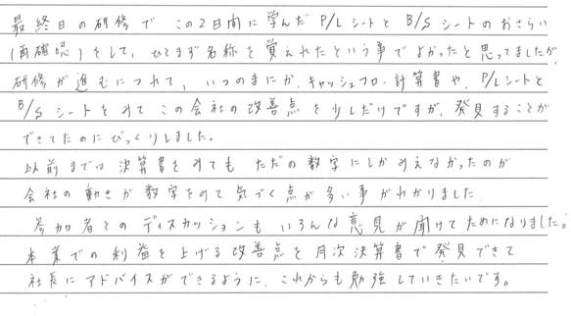 最終日の研修で この2日間に学んだ P/Lシートと B/Sシートのおさらい
(再確認)をして、ひとまず名称を覚えれたという事でよかったと思ってましたが
研修が進むにつれて、いつのまにか、キャッシュフロー計算書や、P/Lシートと
B/S シートをみて この会社の改善点を少しだけですが、発見することが
できてたのにびっくりしました。
以前までは 決算書をみても ただの数字にしかみえなかったのが
会社の動きが数字をみて 気づく点が多い事がわかりました
参加者とのディスカッションも いろんな意見が聞けてためになりました。
本業での利益を上げる改善点を月次決算書で発見できて
社長にアドバイスができるように、これからも勉強していきたいです。